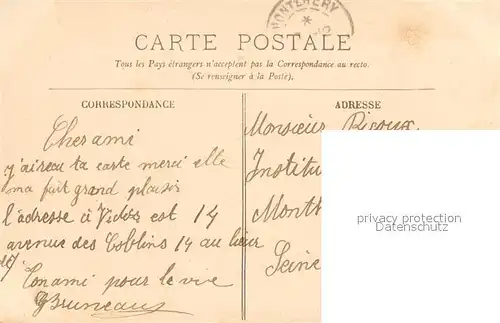 MONTLHERY
CARTE POSTALE
Tous les Pays étrangers n'acceptent pas la Correspondance au recto.
(Se renseigner à la Poste).
CORRESPONDANCE
Cher ami
j'ai reçu ta carte merci elle
ma fait grand plaisir
l'adresse à est 14
avenue des 14 au lieu
de 7
Ton ami pour le vive
Bruneau
ADRESSE
Monsieur
Institu
Montl
Seine
privacy protection
Datenschutz